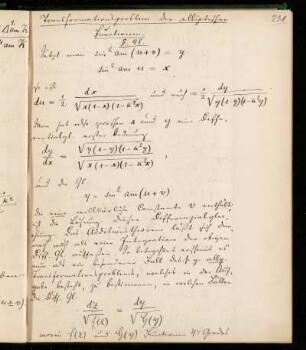 Transformationsproblem der elliptischen
231
Functionen.
§ 98.
Setzt man sin² am (u+v) = y
sin² am u = x
so ist
du = ½ dx / √x(1-x)(1-k²x) und auch = ½ dy / √y(1-y)(1-k²y)
Man hat also zwischen x und y eine Diffe-
erster Ordnung
dy/dx = √y(1-y)(1-k²y) / √x(1-x)(1-k²x) ,
und die Gl.
y = sin² am (u+v)
da eine willkürliche Constante v enthält,
ist die Lösung dieser Differenzialglei-
chung. Das Additionstheorem läßt sich dem-
nach als eine Integration der obigen
Diff. Gl. auffassen. So
nun als ein besonderer Fall des allg.
Transformationsproblems, welches in der Auf-
gabe besteht, zu bestimmen, in welchen Fällen
die Diff. Gl.
dx / √f(x) = dy / √G(y)
worin f(x) und G(y) Functionen 4ten Grades